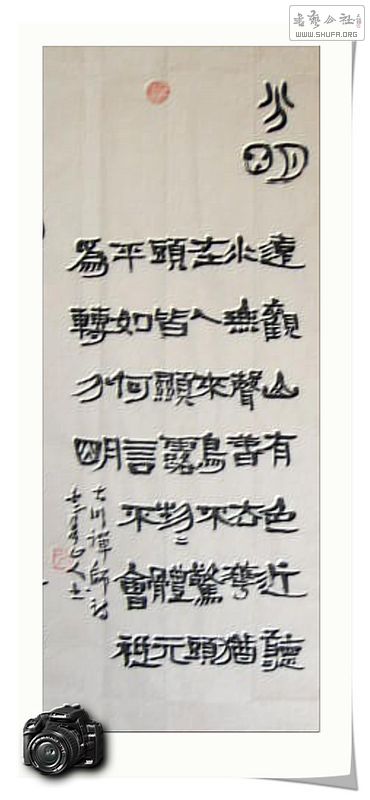 書藝公社
WWW.SHUFA.ORG
分明
遠觀山有色近聽
水無聲春去花猶
在人來鳥不驚頭
頭皆顯露物〻體元
平如何言不會祇
為轉分明
川禪師詩